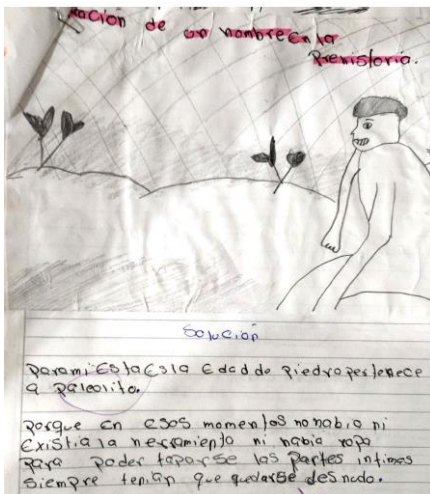 ración de un hombre en la
Prehistoria.
Solución
Para mi Esta Es la Edad de Piedra pertenece
a Paleolito.
Porque en esos momentos no habia ni
Existia la herramiento ni habia ropa
Para Poder taparse las Partes intimas
Siempre tenian que quedarse desnudo.